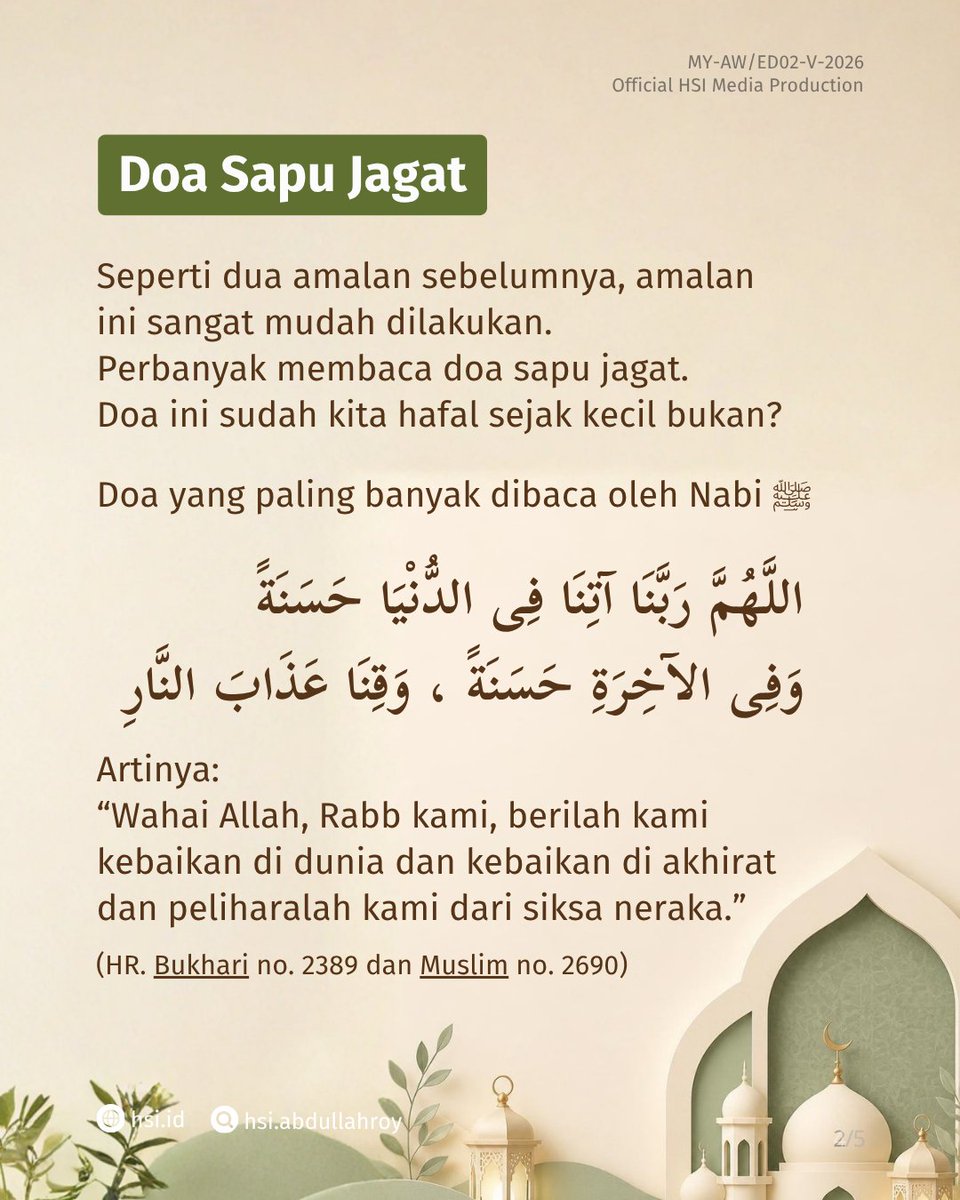 MY-AW/ED02-V-2026
Official HSI Media Production
Doa Sapu Jagat
Seperti dua amalan sebelumnya, amalan
ini sangat mudah dilakukan.
Perbanyak membaca doa sapu jagat.
Doa ini sudah kita hafal sejak kecil bukan?
Doa yang paling banyak dibaca oleh Nabi ﷺ
اللَّهُمَّ رَبَّنَا آتِنَا فِى الدُّنْيَا حَسَنَةً
وَفِى الآخِرَةِ حَسَنَةً ، وَقِنَا عَذَابَ النَّارِ
Artinya:
“Wahai Allah, Rabb kami, berilah kami
kebaikan di dunia dan kebaikan di akhirat
dan peliharalah kami dari siksa neraka.”
(HR. Bukhari no. 2389 dan Muslim no. 2690)
hsi.id hsi.abdullahroy
2/5